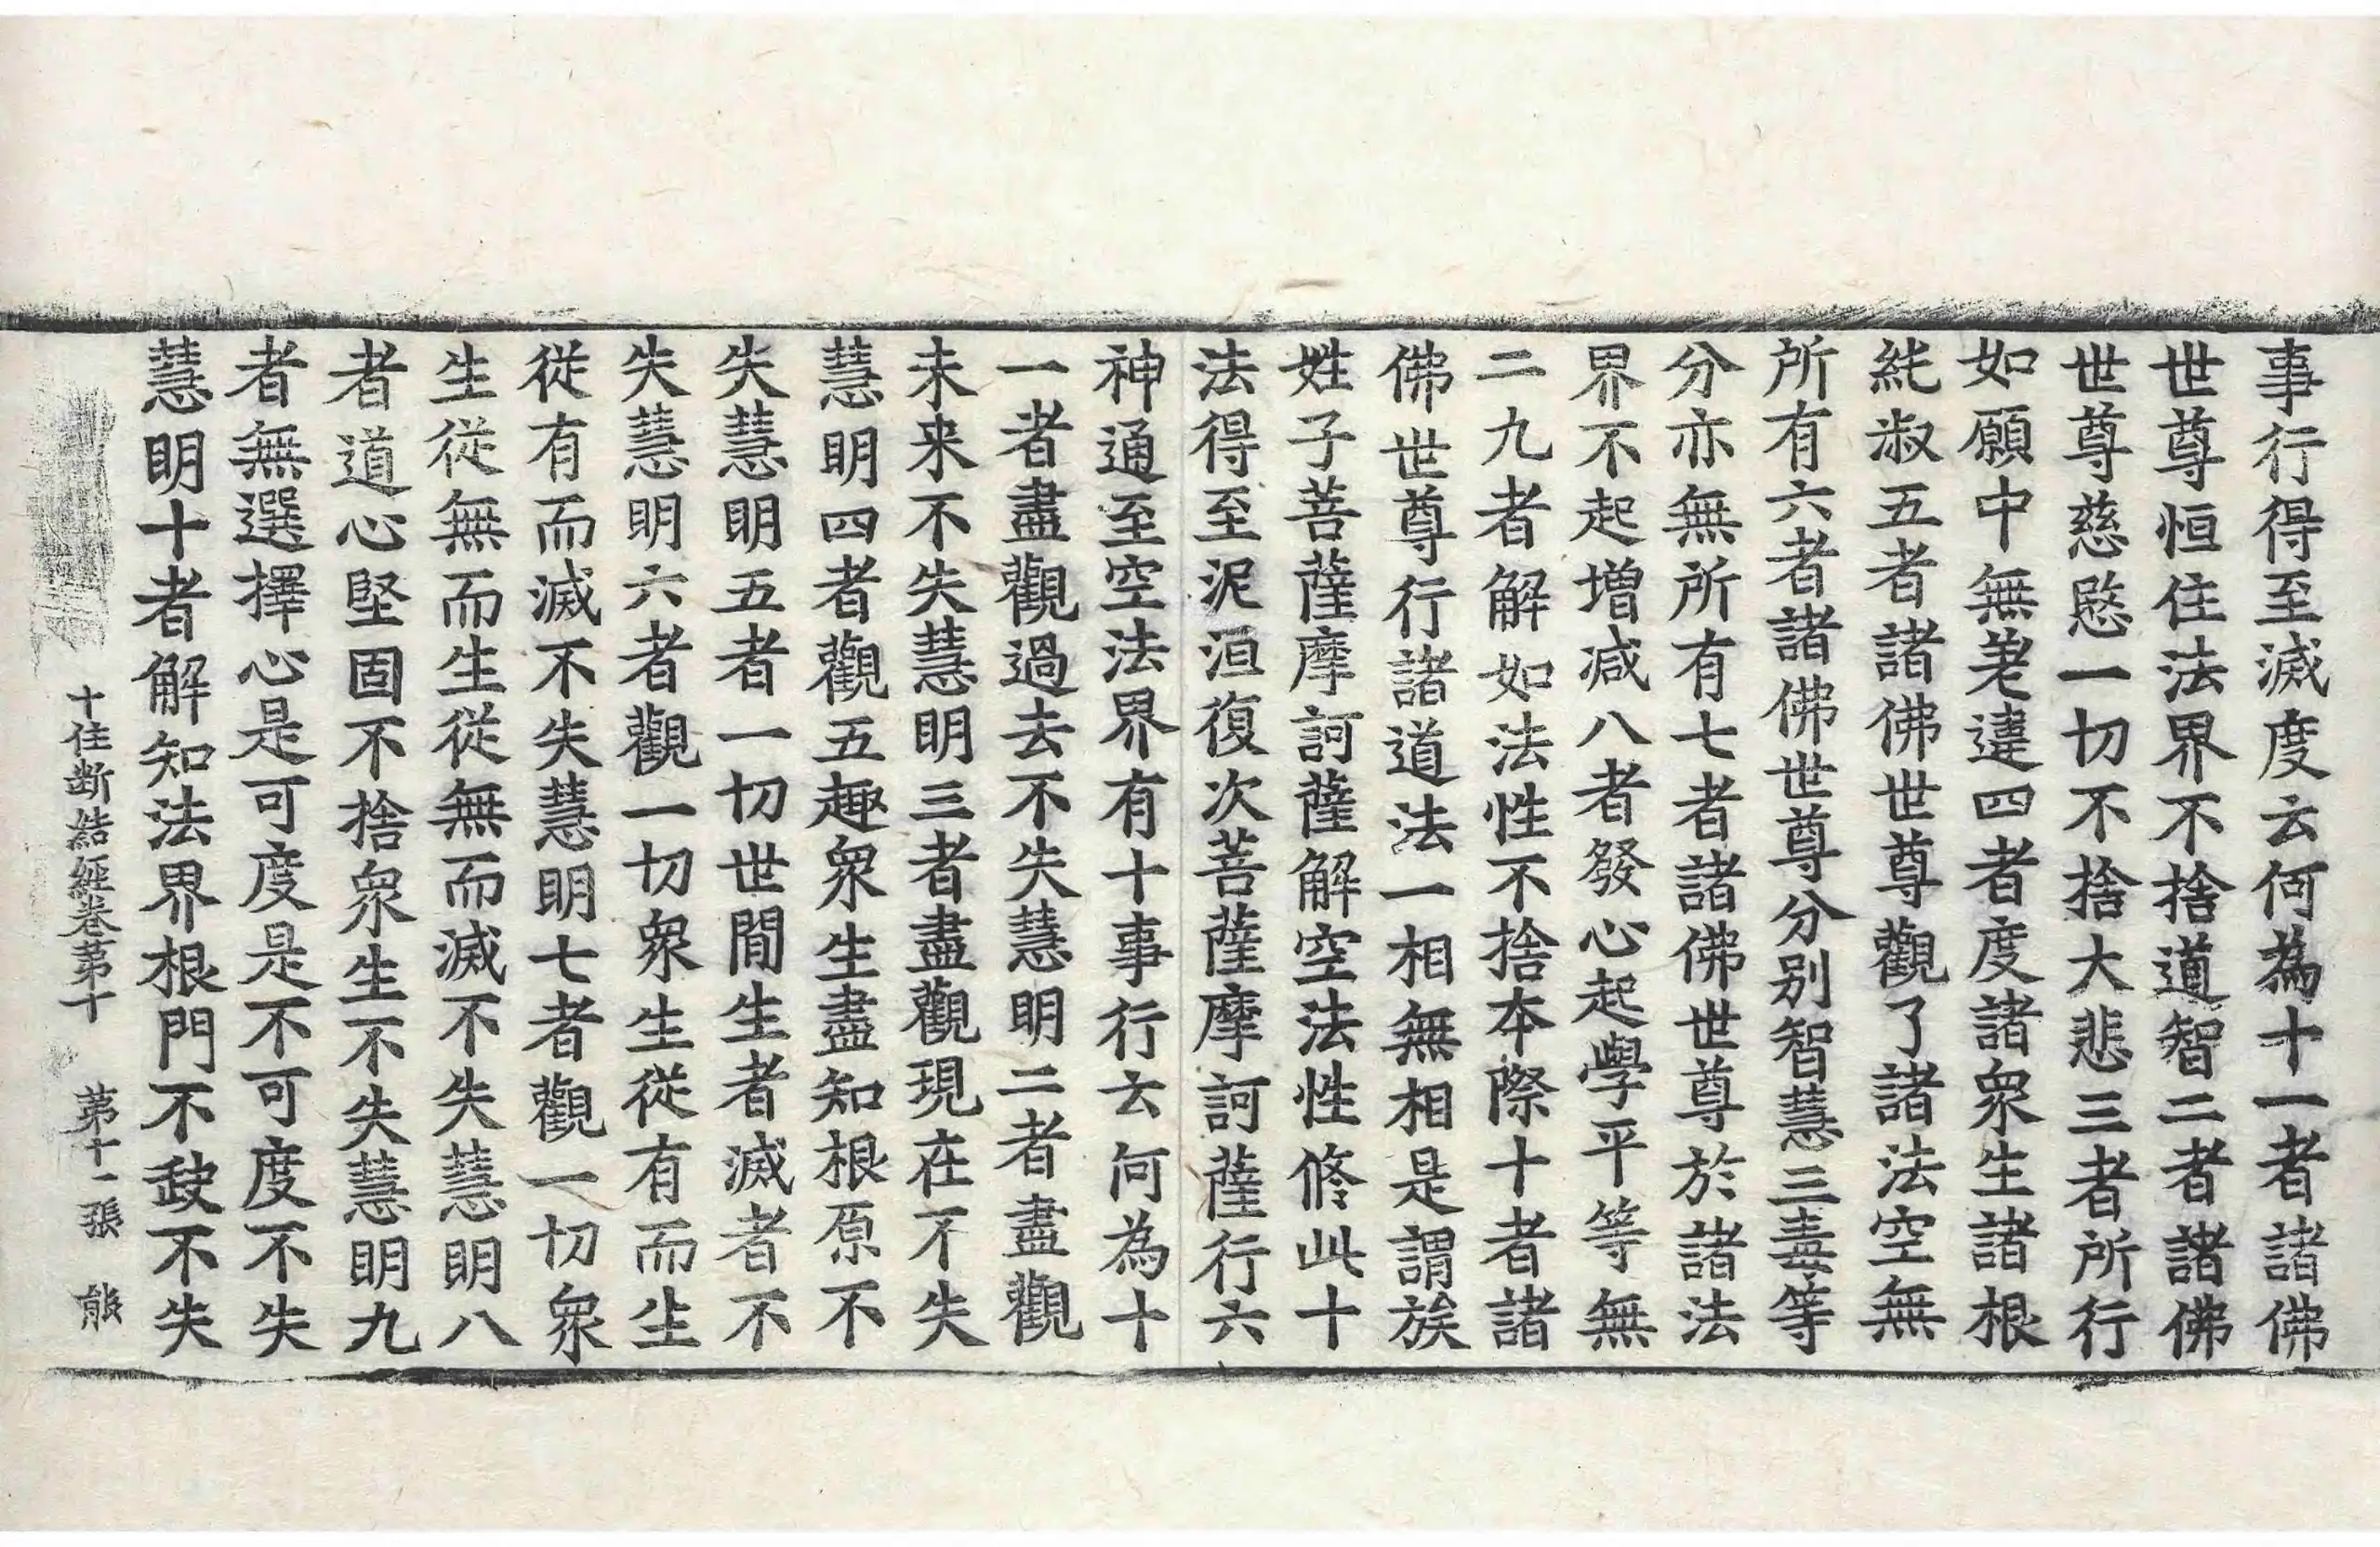 事行得至滅度云何為十一者諸佛
世尊恒住法界不捨道智二者諸佛
世尊慈愍一切不捨大悲三者所行
如願中無差違四者度諸衆生諸根
純淑五者諸佛世尊觀了諸法空無
所有六者諸佛世尊分別智慧三毒等
分亦無所有七者諸佛世尊於諸法
界不起增減八者發心起學平等無
二九者解如法性不捨本際十者諸
佛世尊行諸道法一相無相是謂族
姓子菩薩摩訶薩解空法性修此十
法得至泥洹復次菩薩摩訶薩行六
神通至空法界有十事行云何為十
一者盡觀過去不失慧明二者盡觀
未来不失慧明三者盡觀現在不失
慧明四者觀五趣衆生盡知根原不
失慧明五者一切世間生者滅者不
失慧明六者觀一切衆生從有而生
從有而滅不失慧明七者觀一切衆
生從無而生從無而滅不失慧明八
者道心堅固不捨衆生不失慧明九
者無選擇心是可度是不可度不失
慧明十者解知法界根門不敗不失
十住断結經卷第十 第十一張 熊